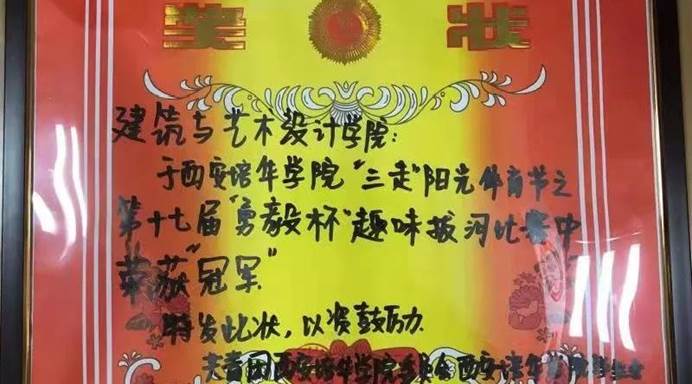 奖状
建筑与艺术设计学院:
于西安培华学院"三走"阳光体育节之
第十七届"勇毅杯"趣味拔河比赛中
荣获"冠军"
特发此状,以资鼓励.
共青团西安培华学院委员会西安培华学院学生会